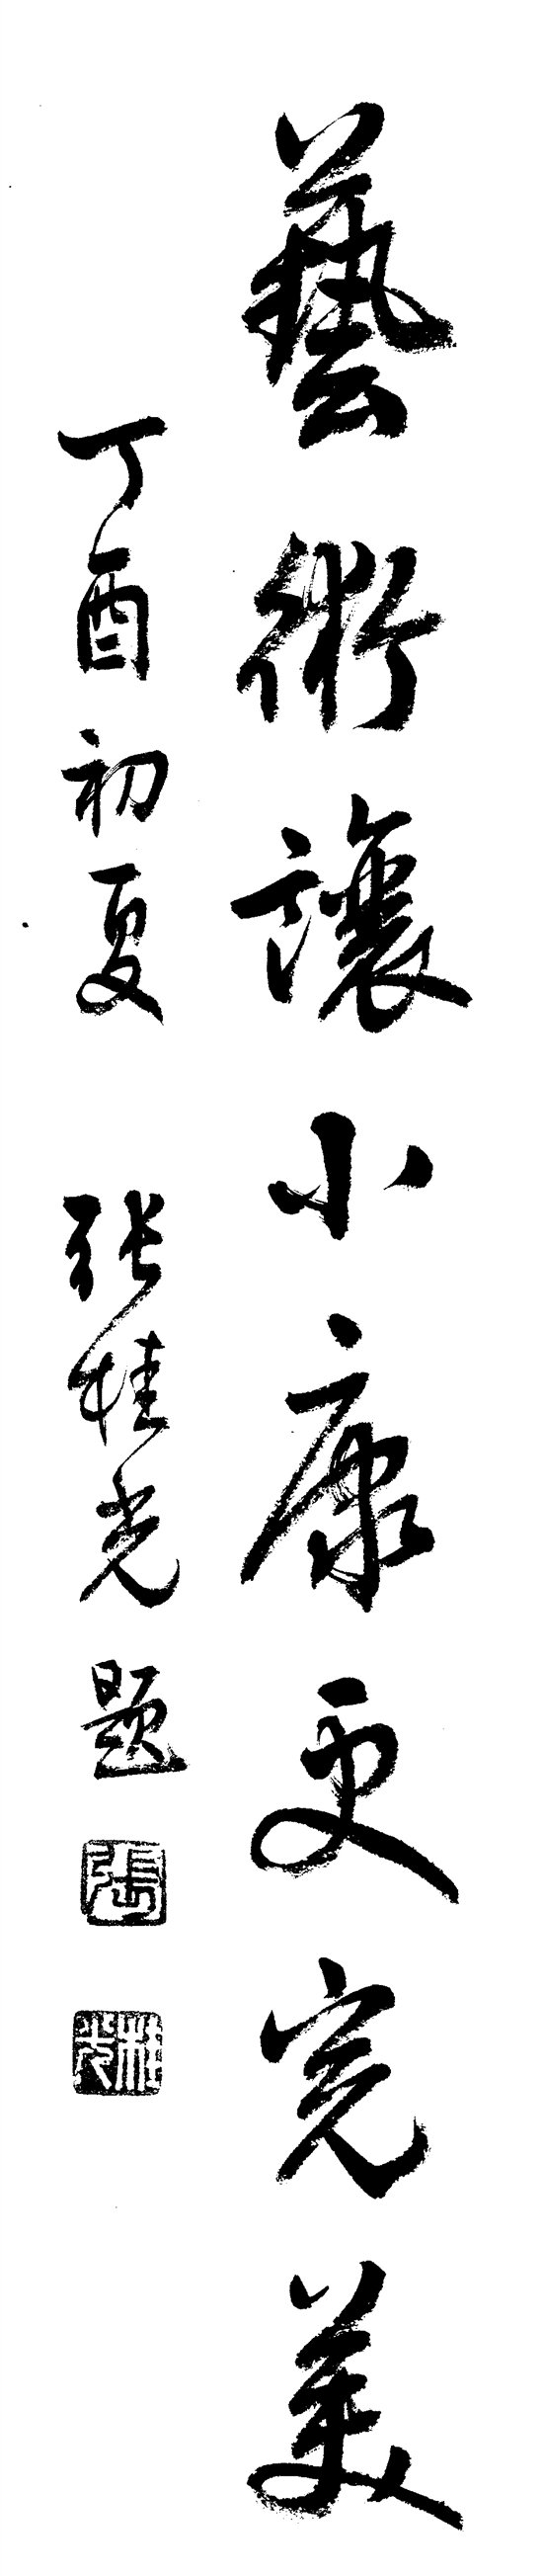 藝術讓小康更完美
丁酉初夏 张桂光题
張
桂光